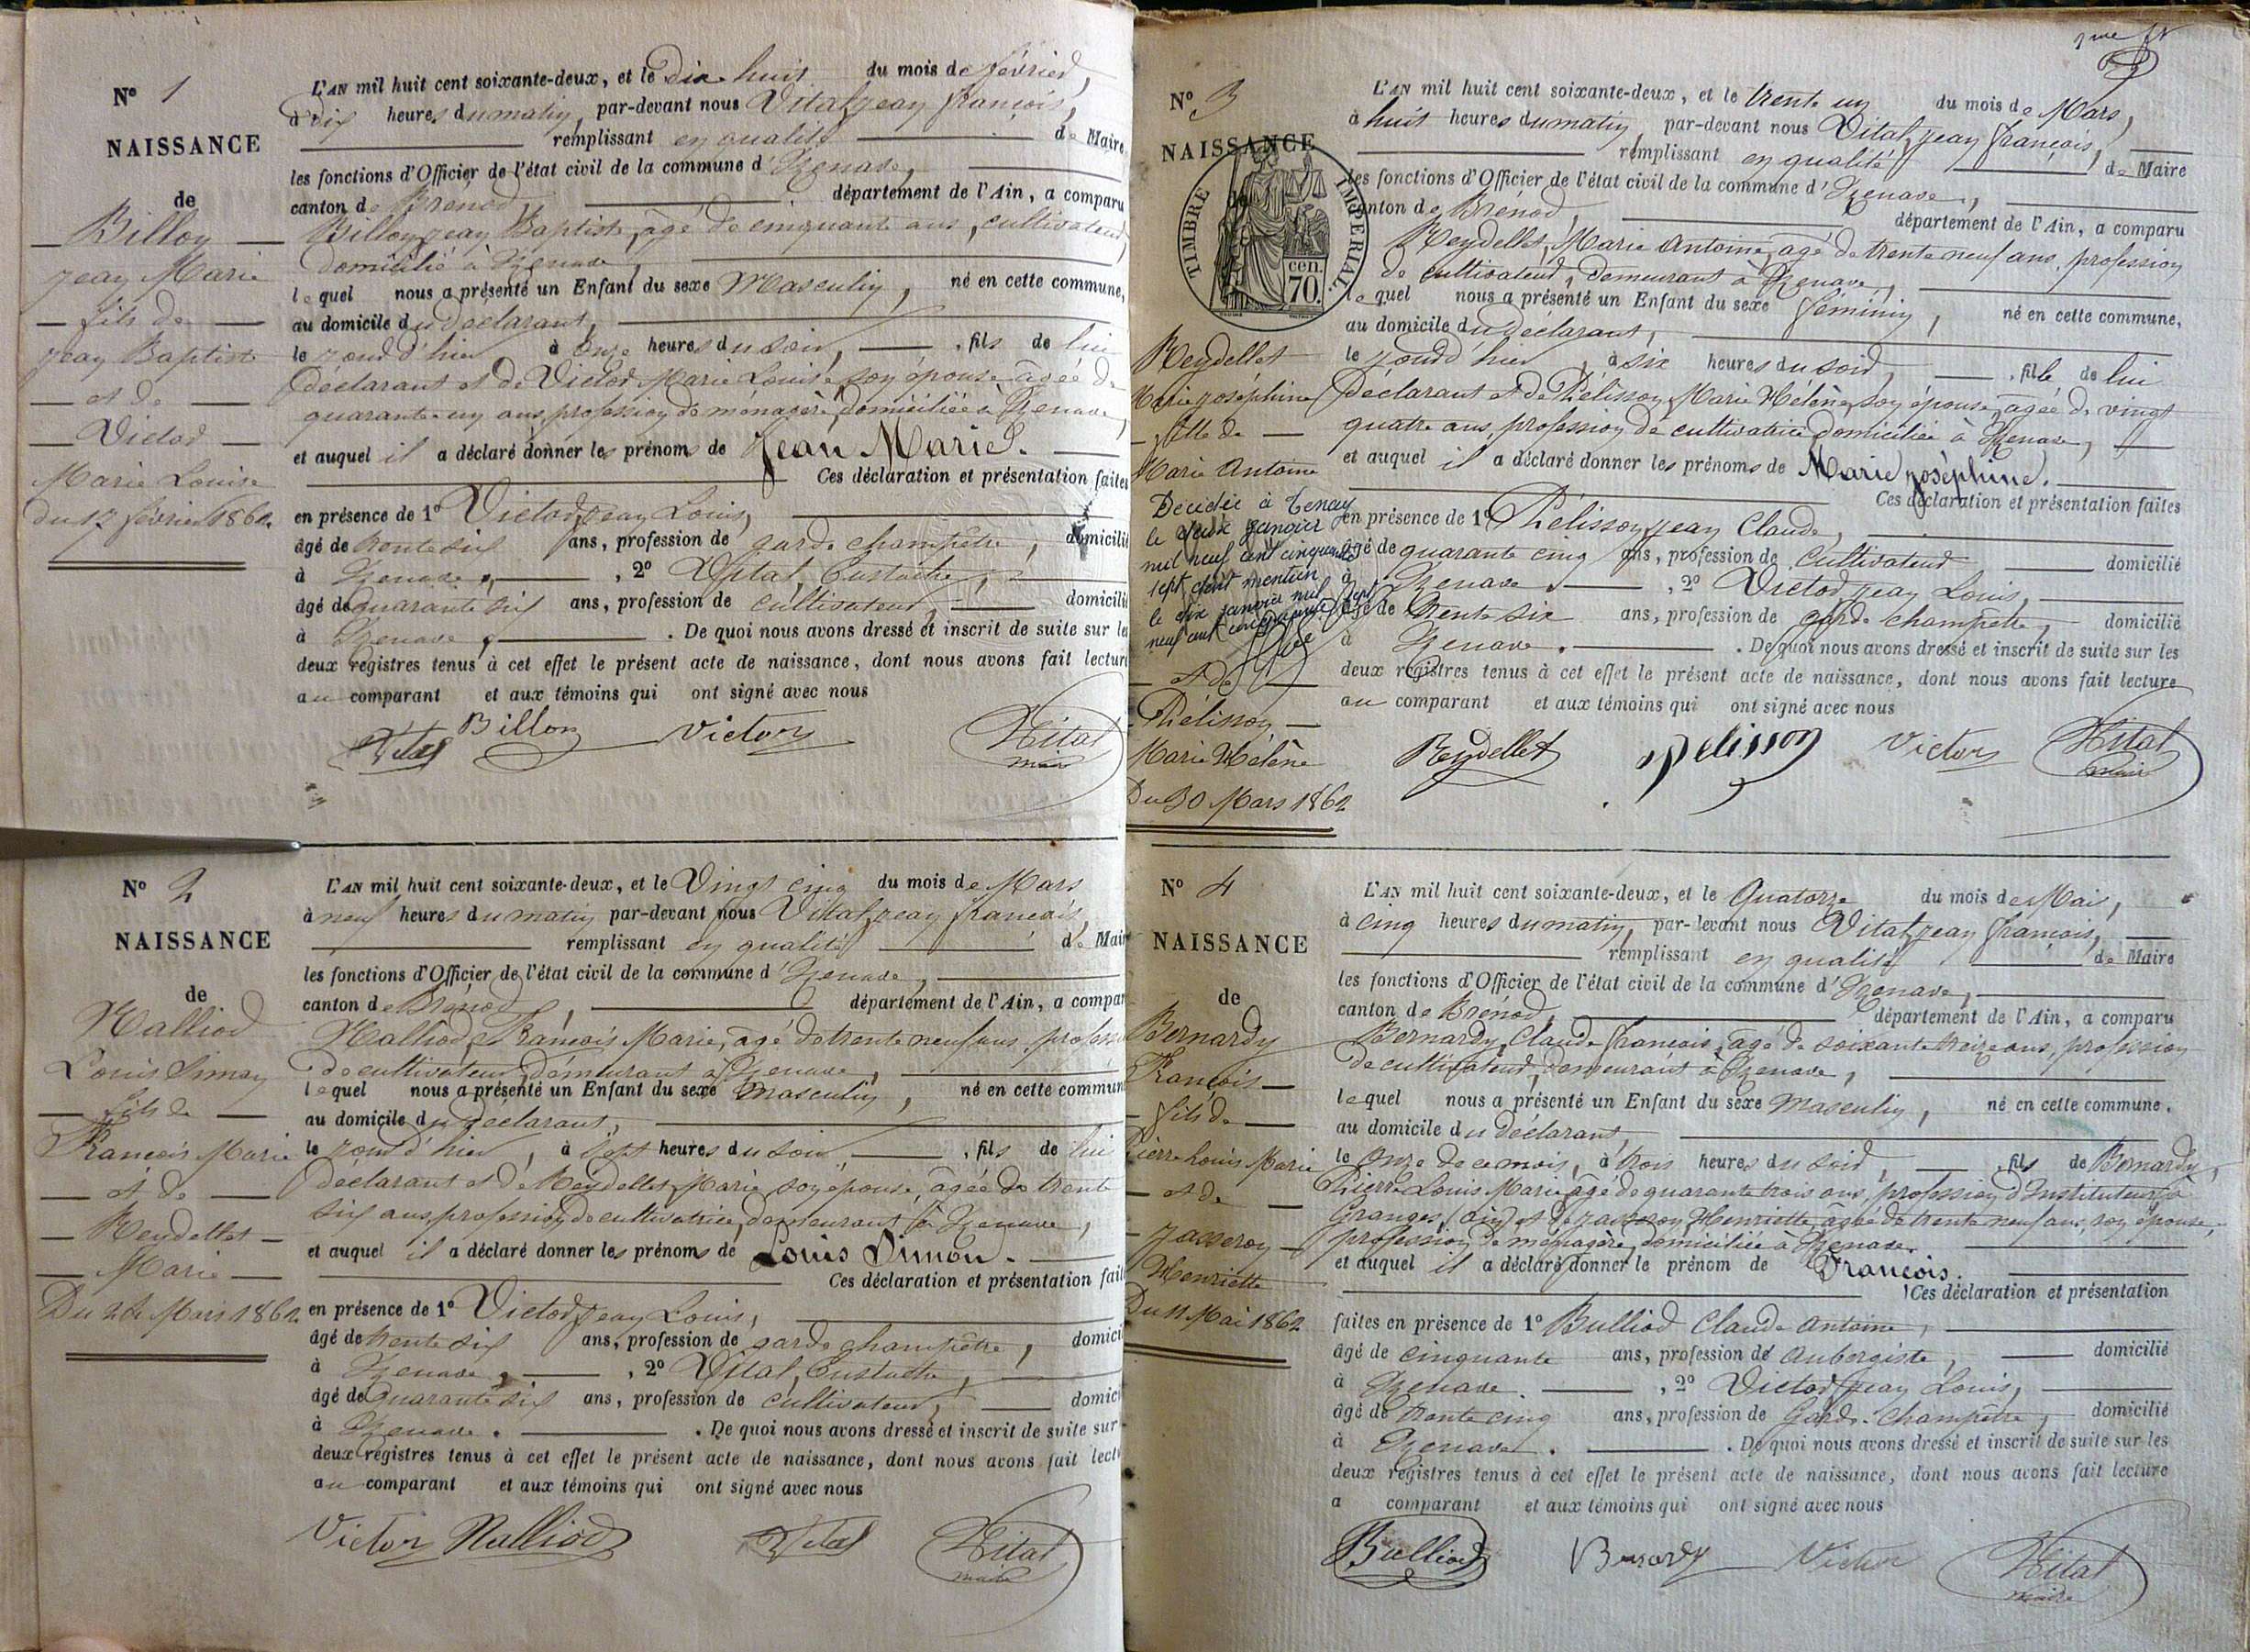 N° 1
NAISSANCE
de
Billon
Jean Marie
fils de
Jean Baptiste
et de
Victor
Marie Louise
du 17 février 1862
L'AN mil huit cent soixante-deux, et le Dix huit du mois de février,
à dix heures du matin, par-devant nous Vital Jean François,
remplissant en qualité de Maire
les fonctions d'Officier de l'état civil de la commune d'Izenave,
canton de Brénod, département de l'Ain, a comparu
Billon Jean Baptiste, âgé de cinquante ans, cultivateur,
domicilié à Izenave,
lequel nous a présenté un Enfant du sexe Masculin, né en cette commune,
au domicile du déclarant,
le jour d'hier à onze heures du soir, fils de lui
déclarant et de Victor Marie Louise son épouse, âgée de
quarante un ans, profession de ménagère, domiciliée à Izenave,
et auquel il a déclaré donner les prénoms de Jean Marie.
Ces déclaration et présentation faites
en présence de 1° Victor Jean Louis,
âgé de trente six ans, profession de garde champêtre, domicilié
à Izenave, 2° Vital, Eustache,
âgé de quarante six ans, profession de cultivateur, domicilié
à Izenave, . De quoi nous avons dressé et inscrit de suite sur les
deux registres tenus à cet effet le présent acte de naissance, dont nous avons fait lecture
au comparant et aux témoins qui ont signé avec nous
Vital Billon Victor Vital
maire
N° 2
NAISSANCE
de
Nalliod
Louis Simon
fils de
François Marie
et de
Reydellet
Marie
Du 24 Mars 1862
L'AN mil huit cent soixante-deux, et le Vingt cinq du mois de Mars
à neuf heures du matin par-devant nous Vital Jean François
remplissant en qualité de Maire
les fonctions d'Officier de l'état civil de la commune d'Izenave,
canton de Brénod, département de l'Ain, a compar
Nalliod, François Marie, âgé de trente neuf ans, profess
de cultivateur, demeurant à Izenave,
lequel nous a présenté un Enfant du sexe masculin, né en cette commun
au domicile du déclarant,
le jour d'hier, à sept heures du soir, fils de lui
déclarant et de Reydellet, Marie, son épouse, âgée de trente
six ans, profession de cultivatrice, demeurant à Izenave,
et auquel il a déclaré donner les prénoms de Louis Simon.
Ces déclaration et présentation fait
en présence de 1° Victor Jean Louis,
âgé de trente six ans, profession de garde champêtre, domici
à Izenave, 2° Vital, Eustache,
âgé de Quarante six ans, profession de cultivateur, domici
à Izenave. . De quoi nous avons dressé et inscrit de suite sur
deux registres tenus à cet effet le présent acte de naissance, dont nous avons fait lect
au comparant et aux témoins qui ont signé avec nous
Victor Nalliod Vital Vital
maire
N° 3
NAISSANCE
TIMBRE IMPERIAL.
cen.
70.
Reydellet
Marie Joséphine
fille de
Marie Antoine
Décédée à Tenay
le deux janvier
mil neuf cent cinquante
sept dont mention
le dix janvier mil
neuf cent cinquante sept
et de
Pélisson
Marie Hélène
Du 30 Mars 1862
L'AN mil huit cent soixante-deux, et le trente un du mois de Mars,
à huit heures du matin, par-devant nous Vital, Jean François,
remplissant en qualité de Maire
les fonctions d'Officier de l'état civil de la commune d'Izenave,
canton de Brénod, département de l'Ain, a comparu
Reydellet, Marie Antoine, âgé de trente neuf ans, profession
de cultivateur, demeurant à Izenave,
lequel nous a présenté un Enfant du sexe féminin, né en cette commune,
au domicile du déclarant,
le jour d'hier, à six heures du soir, fille de lui
déclarant et de Pélisson, Marie Hélène, son épouse, âgée de vingt
quatre ans, profession de cultivatrice domiciliée à Izenave,
et auquel il a déclaré donner les prénoms de Marie Joséphine.
Ces déclaration et présentation faites
en présence de 1° Pélisson Jean Claude,
âgé de quarante cinq ans, profession de cultivateur domicilié
à Izenave. , 2° Victor Jean Louis,
âgé de trente six ans, profession de garde champêtre, domicilié
à Izenave. . De quoi nous avons dressé et inscrit de suite sur les
deux registres tenus à cet effet le présent acte de naissance, dont nous avons fait lecture
au comparant et aux témoins qui ont signé avec nous
Reydellet Pelisson Victor Vital
maire
N° 4
NAISSANCE
de
Bernardy
François
fils de
Pierre Louis Marie
et de
Jasseron
Henriette
Du 11 Mai 1862
L'AN mil huit cent soixante-deux, et le Quatorze du mois de Mai,
à cinq heures du matin, par-devant nous Vital, Jean François,
remplissant en qualité de Maire
les fonctions d'Officier de l'état civil de la commune d'Izenave,
canton de Brénod, département de l'Ain, a comparu
Bernardy, Claude François, âgé de soixante treize ans, profession
de cultivateur, demeurant à Izenave,
lequel nous a présenté un Enfant du sexe masculin, né en cette commune.
au domicile du déclarant,
le onze de ce mois, à trois heures du soir, fils de Bernardy,
Pierre Louis Marie âgé de quarante trois ans, profession d'Instituteur à
Granges, (Ain) et de Jasseron Henriette, âgée de trente neuf ans, son épouse,
profession de ménagère, domiciliée à Izenave.
et auquel il a déclaré donner le prénom de François.
Ces déclaration et présentation
faites en présence de 1° Bulliod Claude Antoine,
âgé de cinquante ans, profession de Aubergiste, domicilié
à Izenave. , 2° Victor Jean Louis,
âgé de trente cinq ans, profession de Garde-champêtre, domicilié
à Izenave. . De quoi nous avons dressé et inscrit de suite sur les
deux registres tenus à cet effet le présent acte de naissance, dont nous avons fait lecture
a comparant et aux témoins qui ont signé avec nous
Bulliod Bernardy Victor Vital
maire